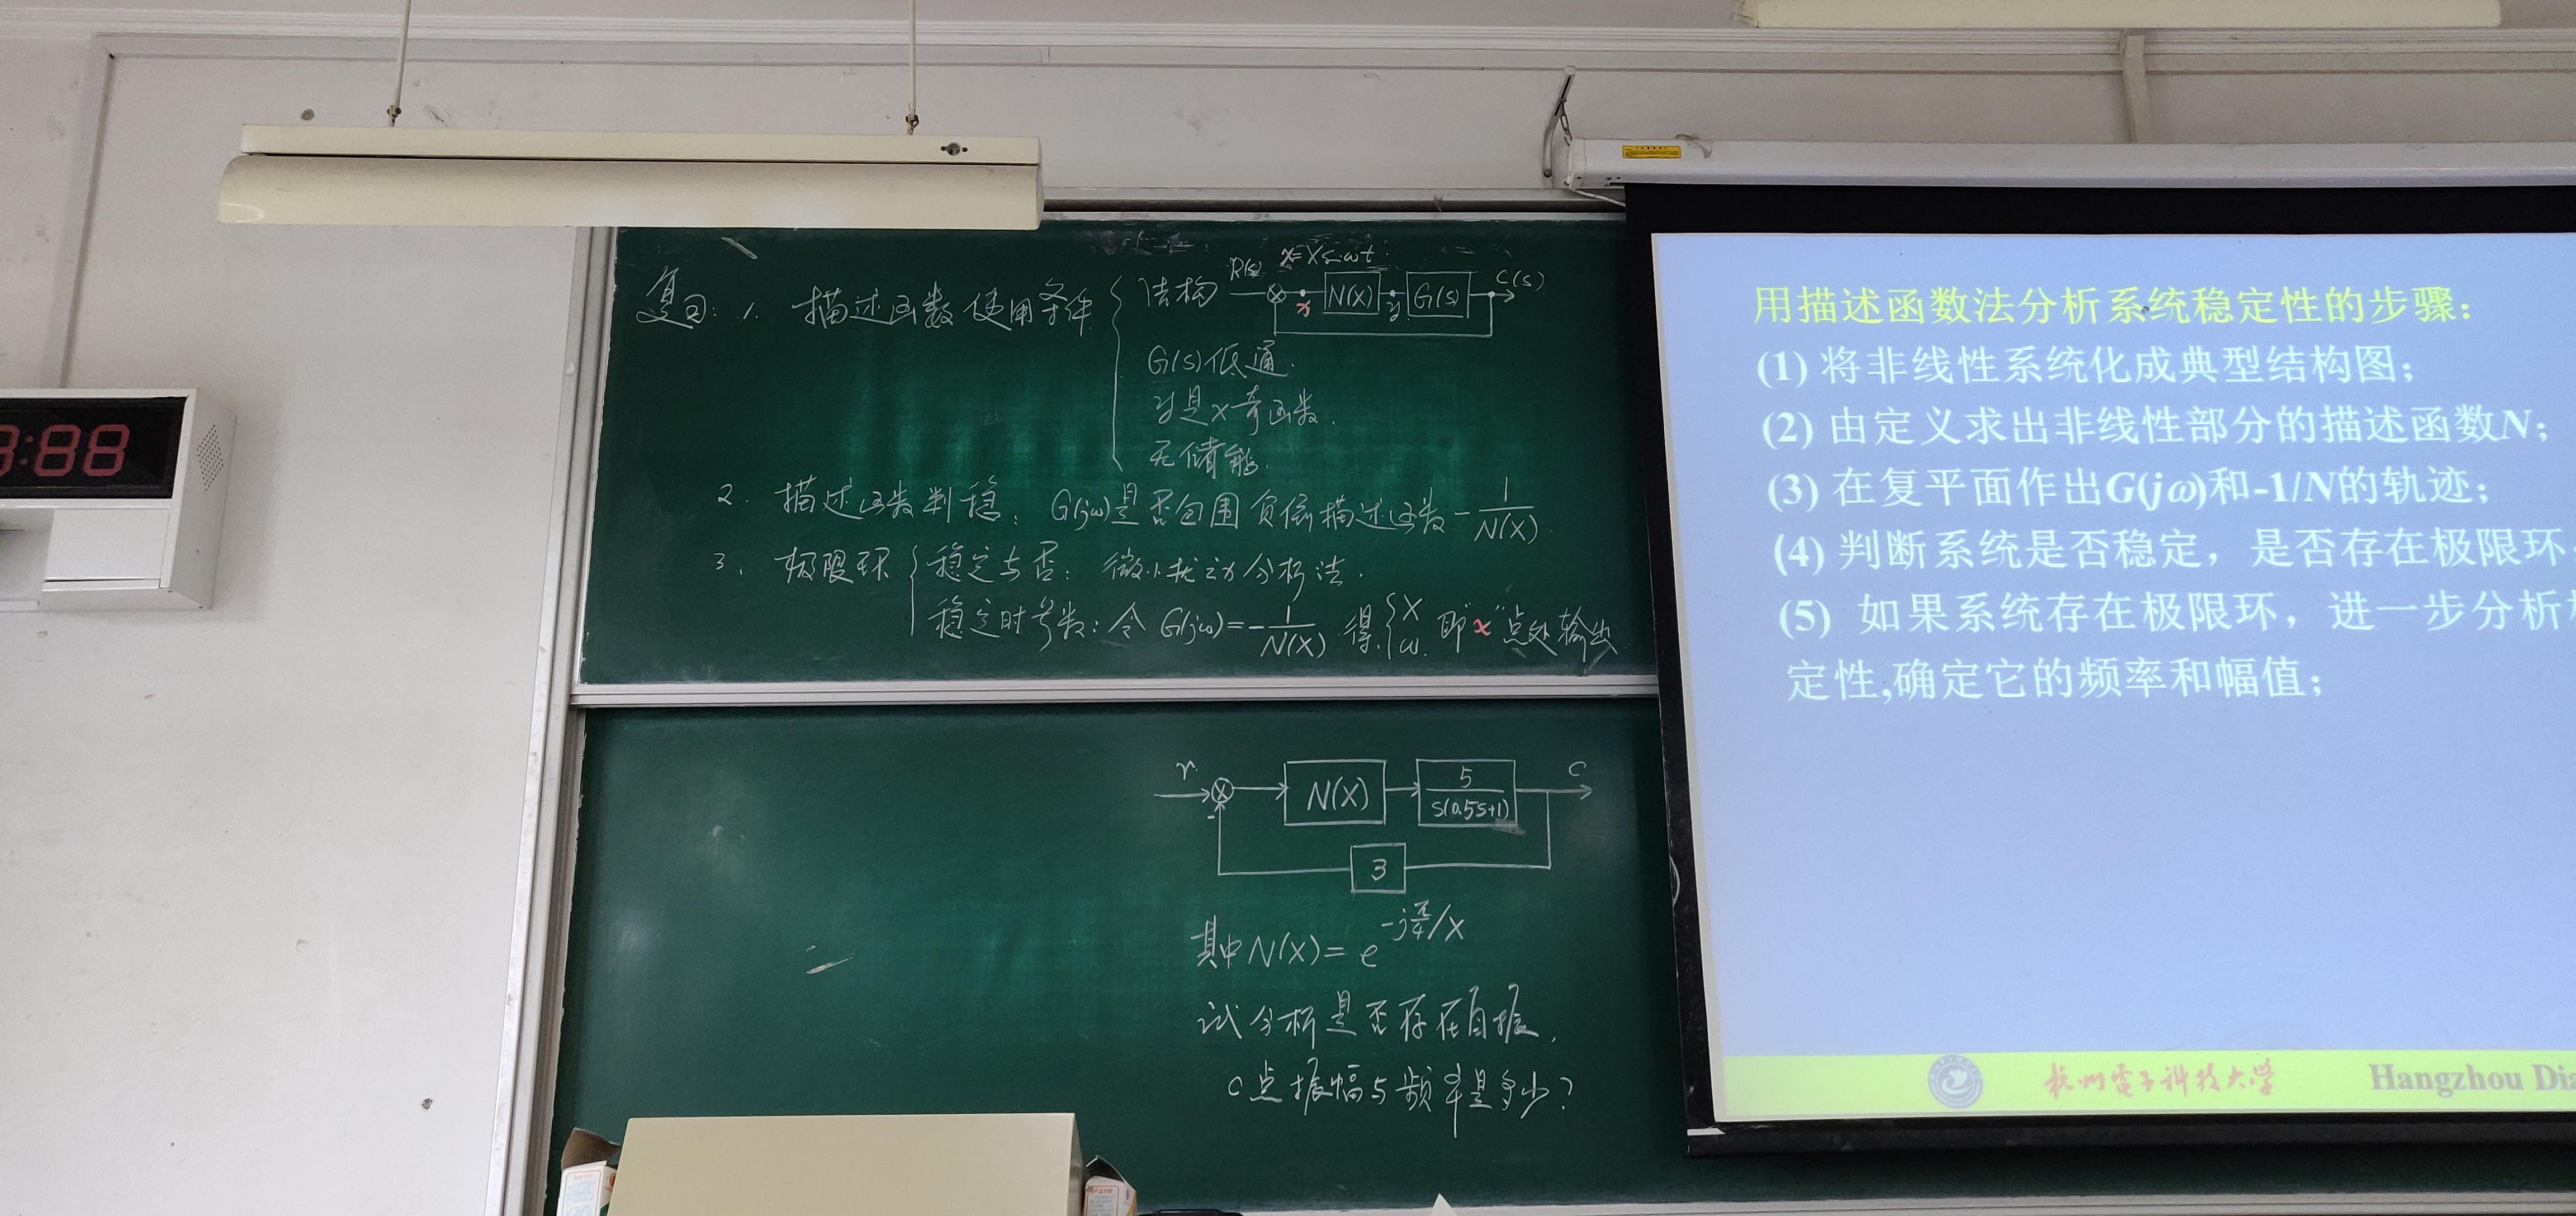 复习: 1. 描述函数使用条件
结构
R(s) x=Xsinωt
x N(X) y G(s) C(s)
G(s)低通.
y是x奇函数.
无储能.
2. 描述函数判稳: G(jω)是否包围负倒描述函数 -1/N(X)
3. 极限环
稳定与否: 微小扰动分析法.
稳定时参数: 令 G(jω)=-1/N(X) 得 { X ω. 即"x"点处输出.
r N(X) 5/s(0.5s+1) C
-
3
其中N(X)=e^{-jπ/4}/X
试分析是否存在自振,
C点振幅与频率是多少?
:88
用描述函数法分析系统稳定性的步骤:
(1) 将非线性系统化成典型结构图;
(2) 由定义求出非线性部分的描述函数N;
(3) 在复平面作出G(jω)和-1/N的轨迹;
(4) 判断系统是否稳定，是否存在极限环
(5) 如果系统存在极限环，进一步分析
定性,确定它的频率和幅值;
杭州电子科技大学 Hangzhou Dia